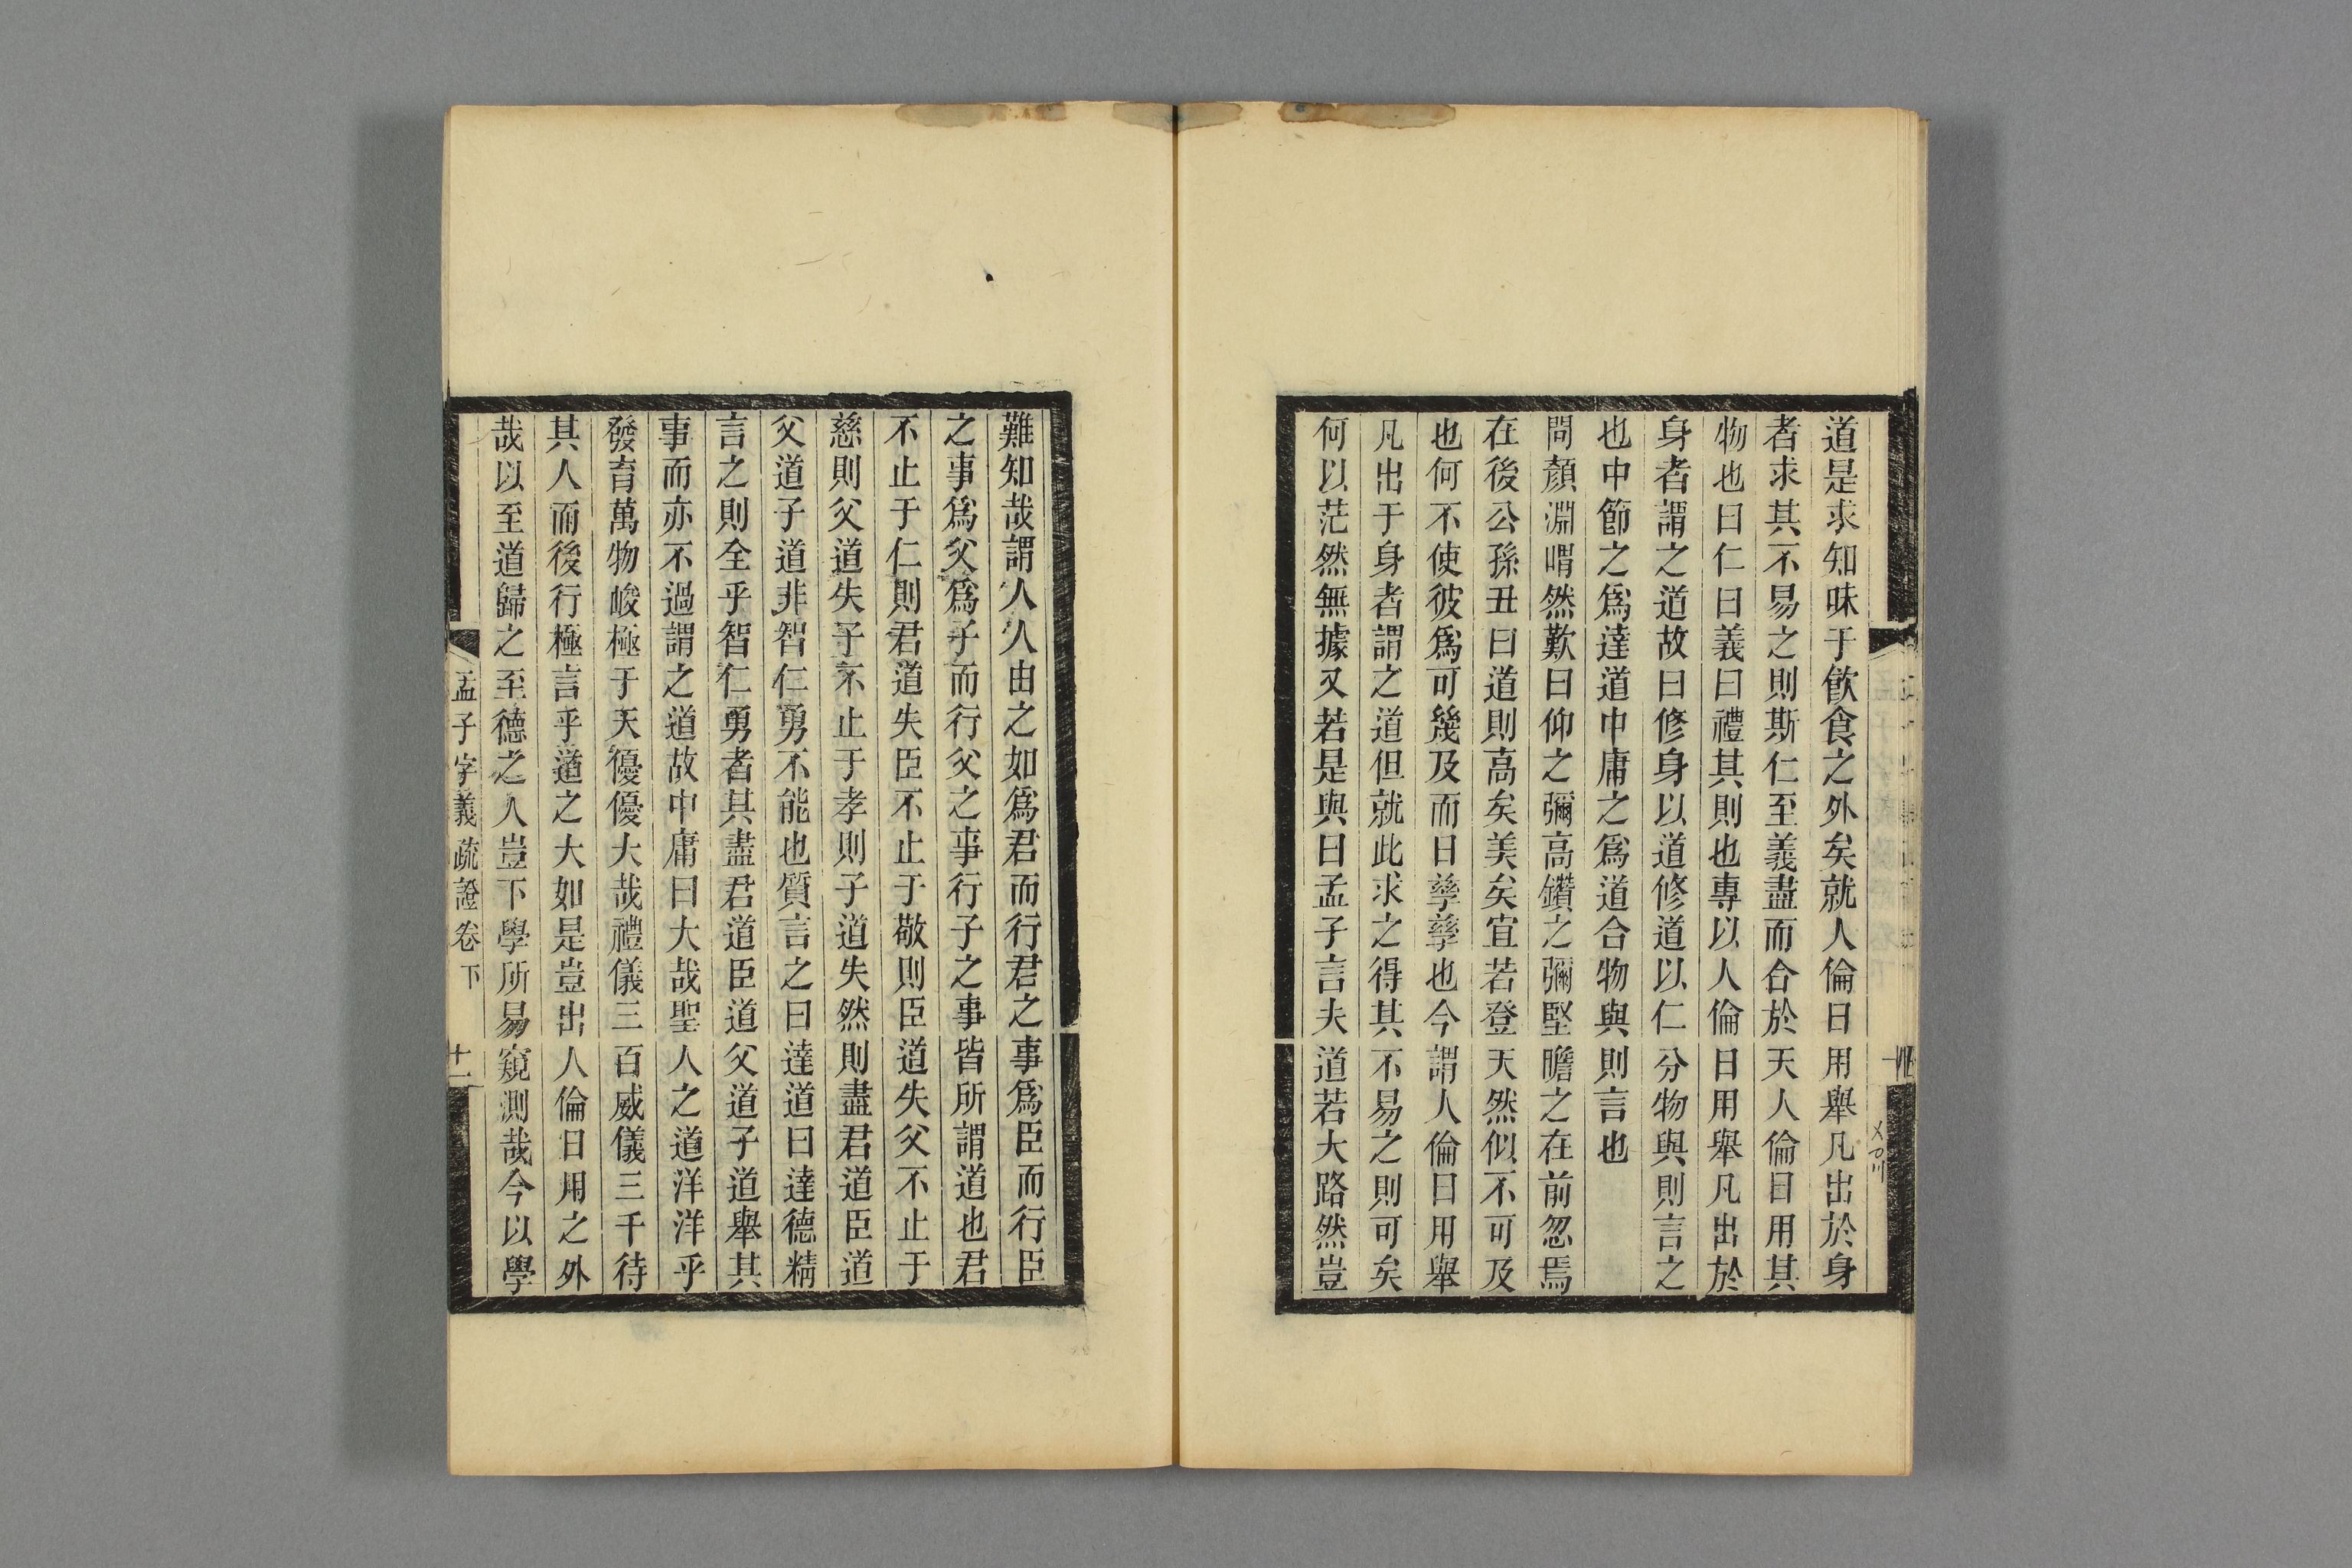 道是求知味于飲食之外矣就人倫日用舉凡出於身
者求其不易之則斯仁至義盡而合於天人倫日用其
物也曰仁曰義曰禮其則也專以人倫日用舉凡出於
身者謂之道故曰修身以道修道以仁分物與則言之
也中節之爲達道中庸之爲道合物與則言也
問顏淵喟然歎曰仰之彌高鑽之彌堅瞻之在前忽焉
在後公孫丑曰道則高矣美矣宜若登天然似不可及
也何不使彼爲可幾及而日孳孳也今謂人倫日用舉
凡出于身者謂之道但就此求之得其不易之則可矣
何以茫然無據又若是與曰孟子言夫道若大路然豈
難知哉謂人人由之如爲君而行君之事爲臣而行臣
之事爲父爲子而行父之事行子之事皆所謂道也君
不止于仁則君道失臣不止于敬則臣道失父不止于
慈則父道失子不止于孝則子道失然則盡君道臣道
父道子道非智仁勇不能也質言之曰達道曰達德精
言之則全乎智仁勇者其盡君道臣道父道子道舉其
事而亦不過謂之道故中庸曰大哉聖人之道洋洋乎
發育萬物峻極于天優優大哉禮儀三百威儀三千待
其人而後行極言乎道之大如是豈出人倫日用之外
哉以至道歸之至德之人豈下學所易窺測哉今以學
孟子字義疏證卷下 十一